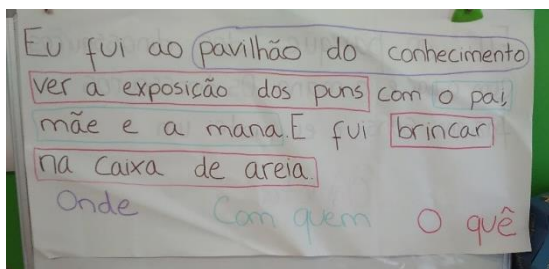 Eu fui ao pavilhão do conhecimento
ver a exposição dos puns com o pai,
mãe e a mana. E fui brincar
na caixa de areia.
Onde Com quem O quê